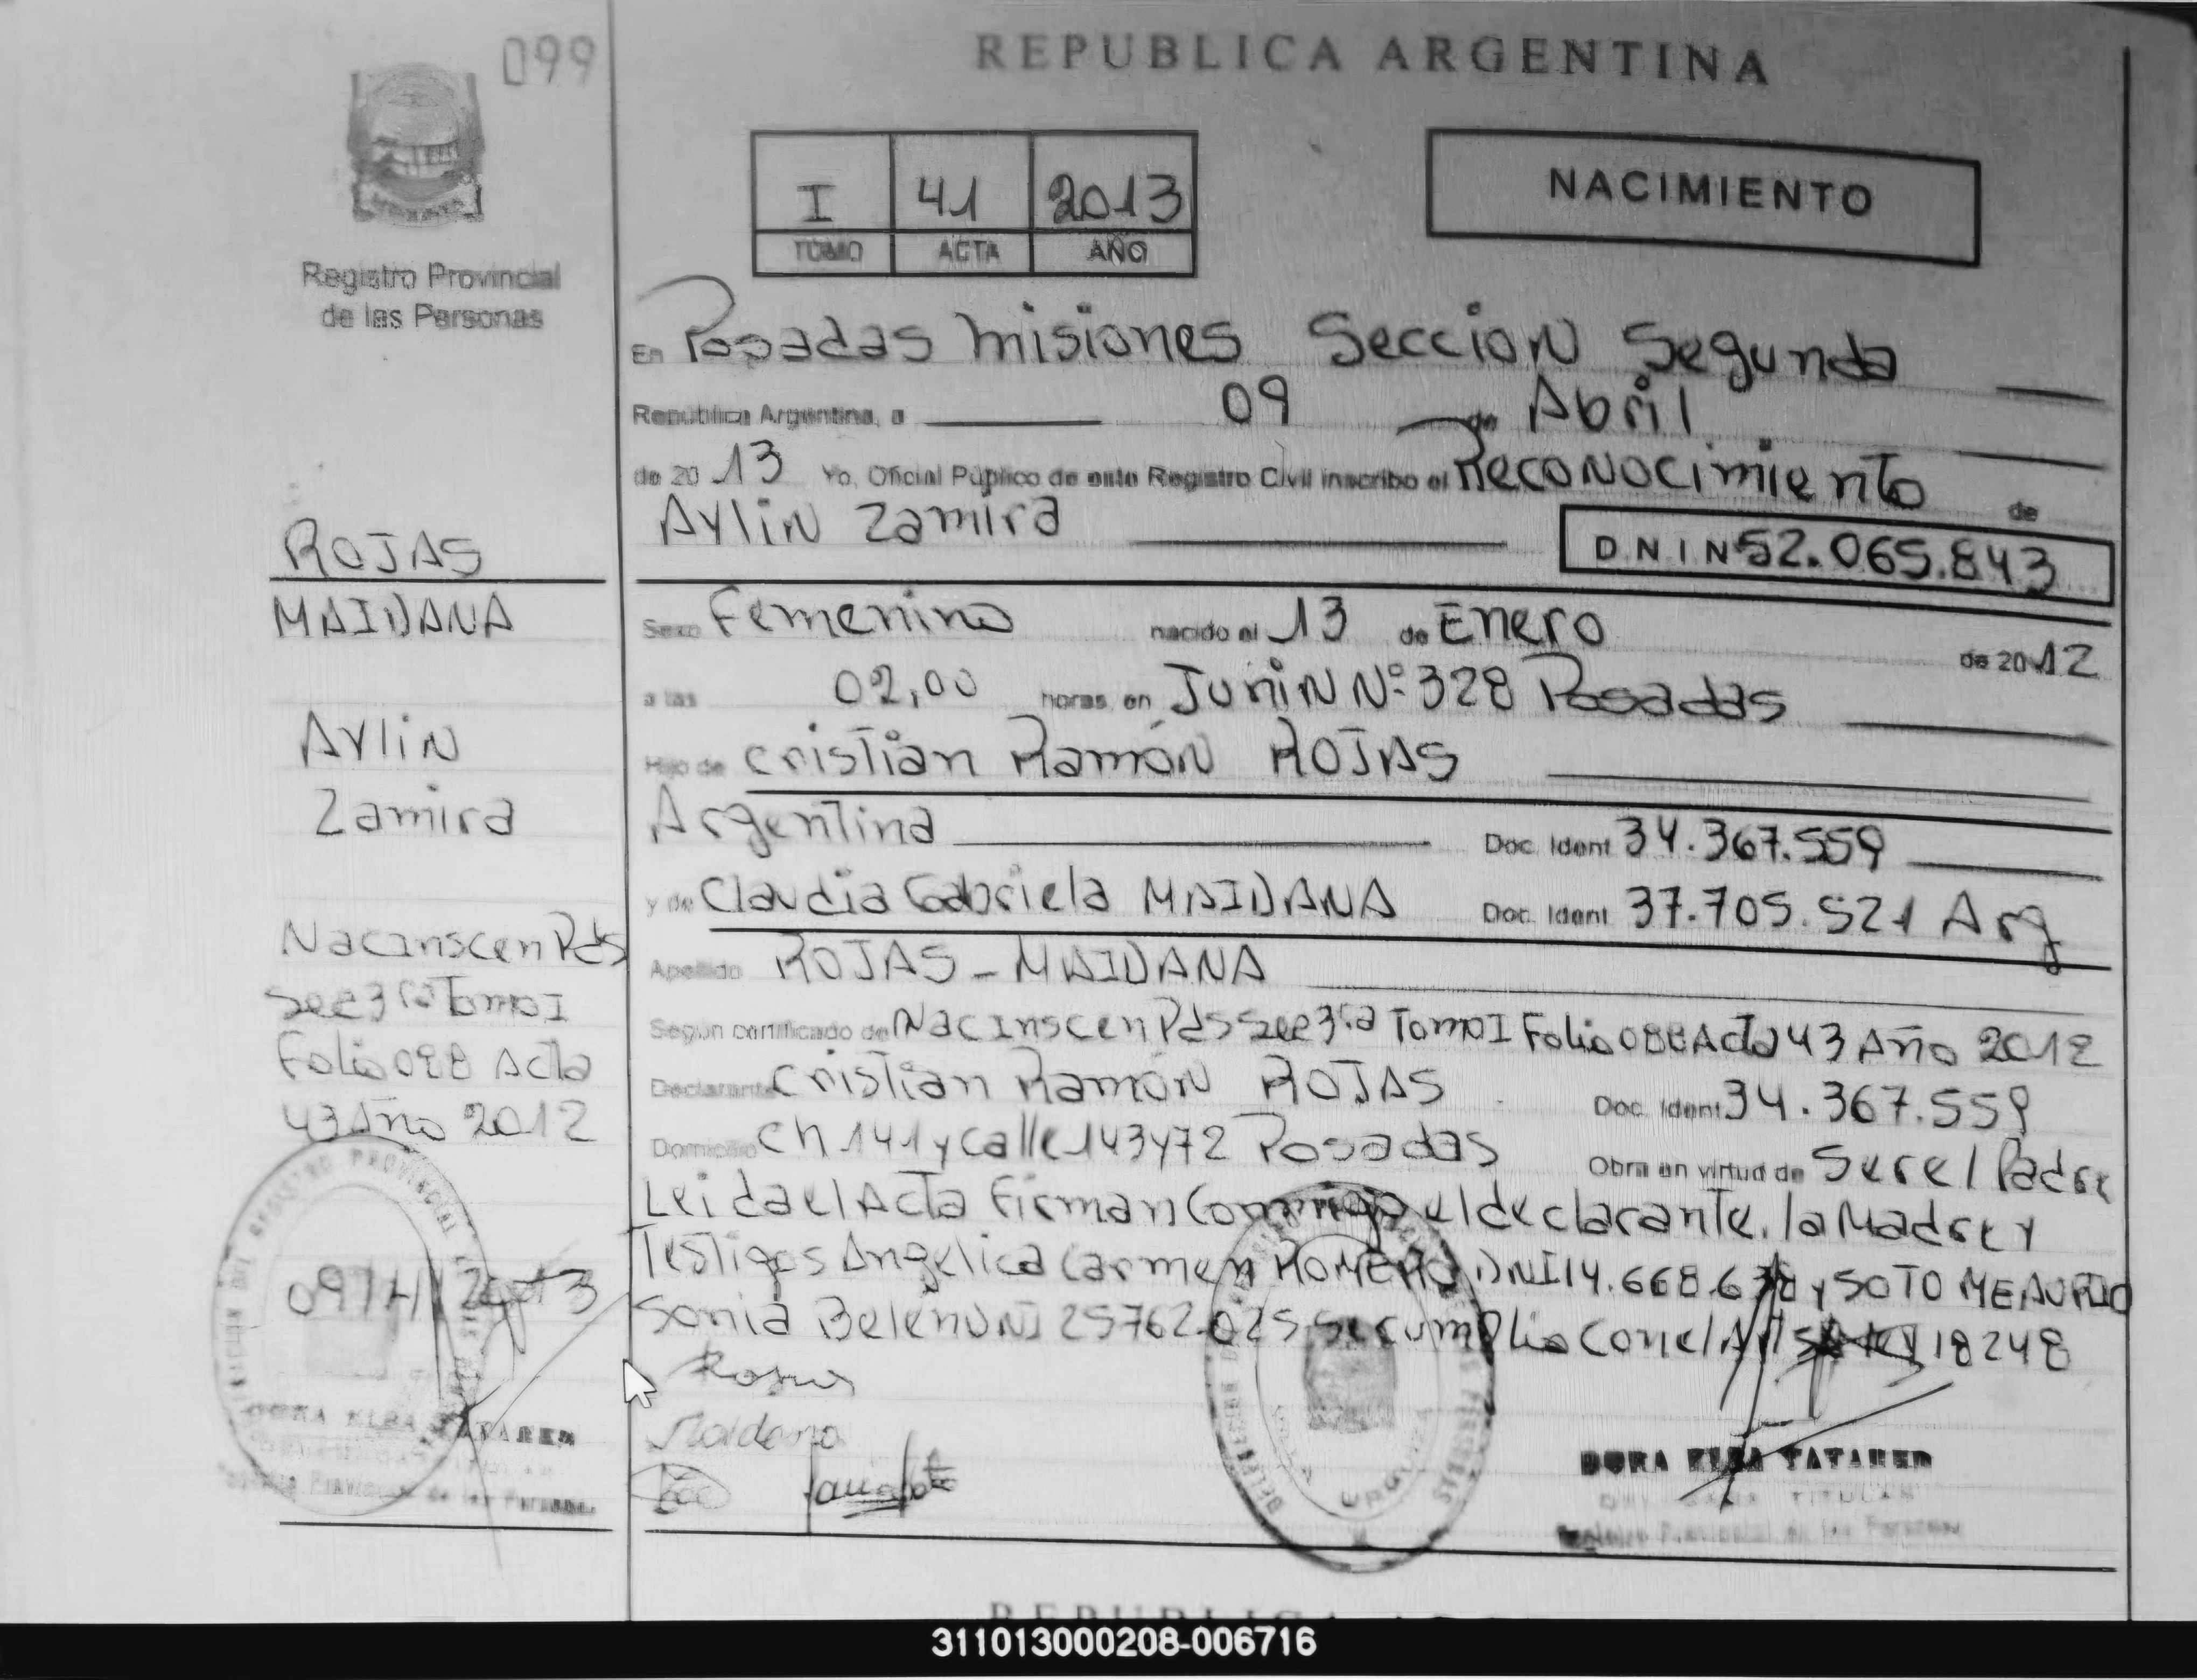 099
REPUBLICA ARGENTINA
I 41 2013
TOMO ACTA AÑO
NACIMIENTO
Registro Provincial
de las Personas
En Posadas Misiones Seccion Segunda
República Argentina, a 09 de Abril
de 20 13 Yo, Oficial Público de este Registro Civil inscribo el Reconocimiento de
Aylin Zamira
D N I N 52.065.843
ROJAS
MAIDANA
Aylin
Zamira
Sexo Femenino nacido el 13 de Enero de 20 12
a las 02,00 horas, en Junin N° 328 Posadas
Hijo de Cristian Ramón ROJAS
Argentina Doc. Ident 34.367.559
y de Claudia Gabriela MAIDANA Doc. Ident 37.705.521 Arg
Apellido ROJAS - MAIDANA
Según certificado de Nac Inscen Pds Sec 3ra Tomo I Folio Acta 43 Año 2012
Declarante Cristian Ramón ROJAS Doc. Ident 34.367.559
Domicilio Ch 141 y Calle 143 y 72 Posadas Obra en virtud de Ser el Padre
Leida el Acta Firman Conmigo el declarante, la Madre y
Testigos Angelica Carmen ROMERO DNI 14.668. y SOTO
Sonia Belén DNI 25762.025 Se cumplio Con el 18248
Nac Inscen Pds
Sec 3ra Tomo I
Folio Acta
43 Año 2012
09/4/2013
DORA ELBA TATAREN
Registro Provincial de las Personas
DORA ELBA TATAREN
Registro Provincial de las Personas
REPUBLICA
311013000208-006716